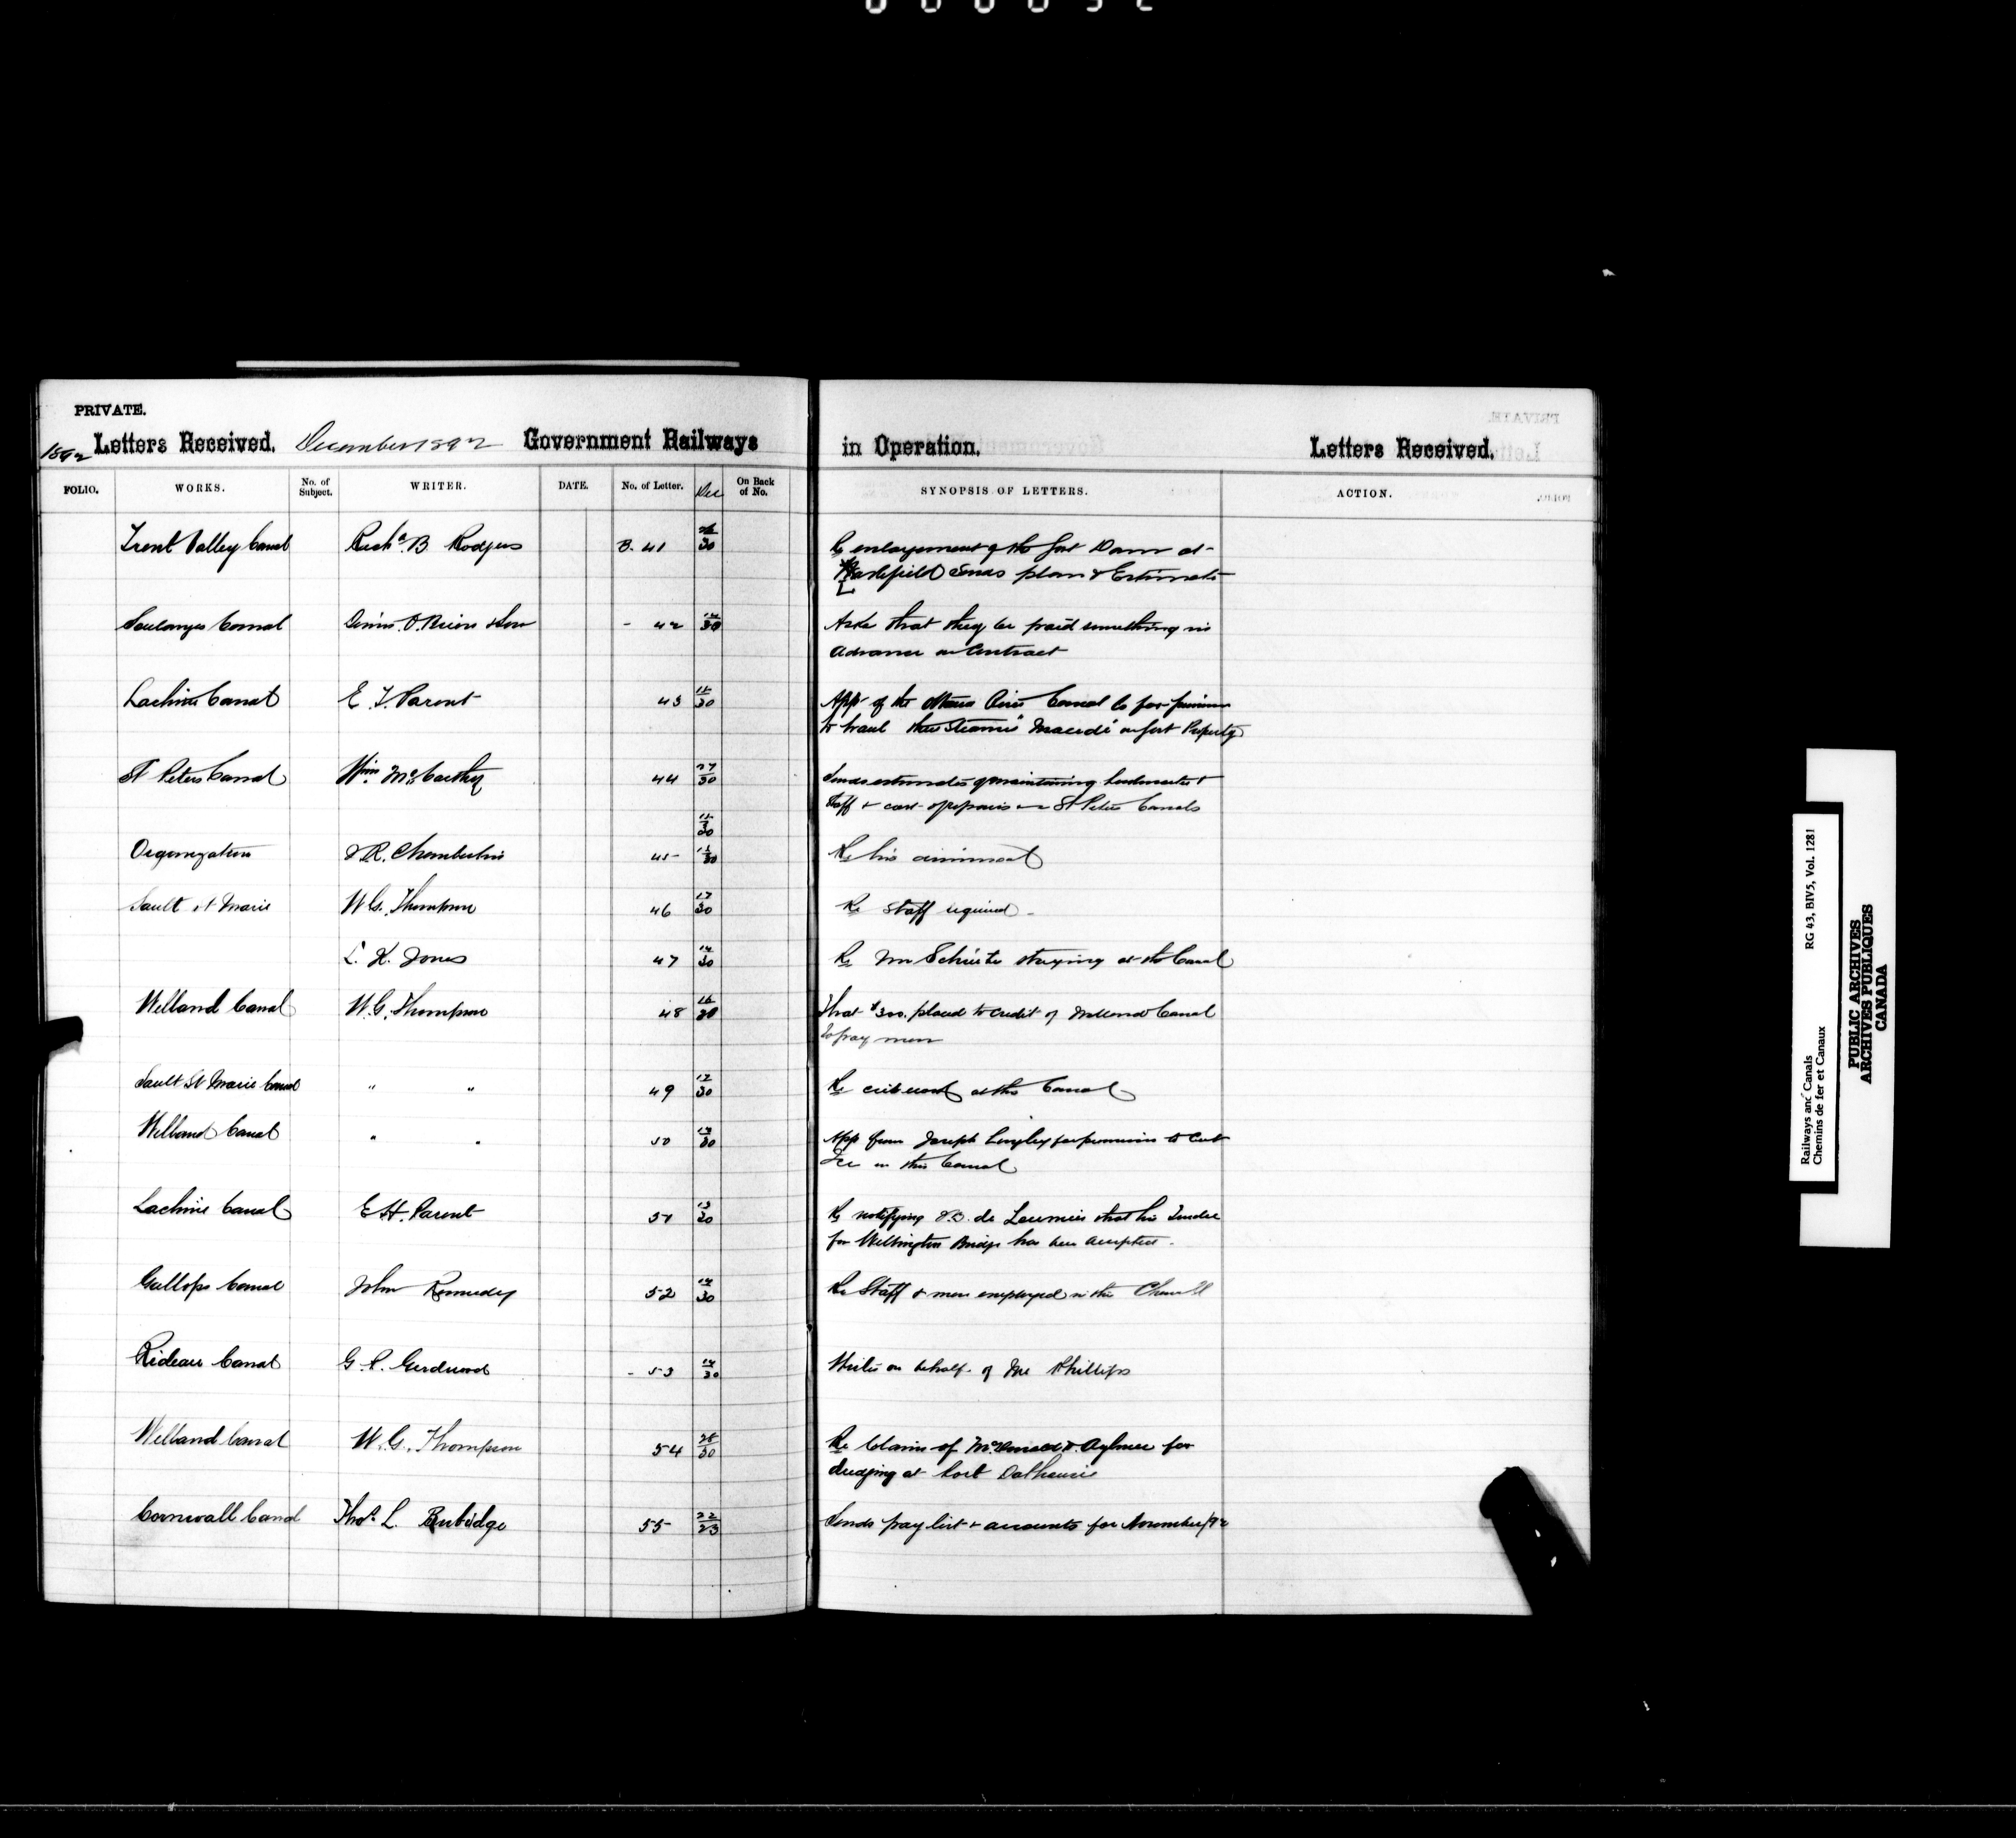 PRIVATE.
1892 Letters Received. December 1892 Government Railways in Operation. Letters Received.
FOLIO. WORKS. No. of Subject. WRITER. DATE. No. of Letter. Dec On Back of No. SYNOPSIS OF LETTERS. ACTION.
Trent Valley Canal Richd. B Rodgers B. 41 30 Re enlargement of the Dam at
sends plan & Estimate
Soulanges Canal O.Brien & Son - 42 30 Asks that they be paid something in
advance on Contract
Lachine Canal E. Parent 43 30 App of the Ottawa River Canal Co for
to haul their Steamer on Property
St Peters Canal Wm McCarthy 44 27/30 Sends estimates of maintaining &
Staff & cost of repairs St Peters Canals
Organization R. Chamberlin 45 30 Re his
Sault St Marie W.G. Thompson 46 17/30 Re Staff required -
L. K. Jones 47 14/30 Re Mr staying at the Canal
Welland Canal W.G. Thompson 48 16/30 That $300. placed to credit of Welland Canal
to pay men
Sault St Marie Canal " " 49 17/30 Re cribwork at the Canal
Welland Canal " " 50 14/30 App from Joseph for permission to Cut
Ice on the Canal
Lachine Canal E H. Parent 51 13/30 Re notifying de that his Tender
for Wellington Bridge has been accepted.
Gallops Canal John Kennedy 52 14/30 Re Staff & men employed in the
Rideau Canal G. 53 14/30 Writes on behalf of Mr Phillips
Welland Canal W.G. Thompson 54 28/30 Re Claim of & Aylmer for
dredging at Port Dalhousie
Cornwall Canal Thos. L. Rubidge 55 22/23 Sends pay list & accounts for November/92
Railways and Canals RG 43, BIV5, Vol. 1281
Chemins de fer et Canaux
PUBLIC ARCHIVES
ARCHIVES PUBLIQUES
CANADA